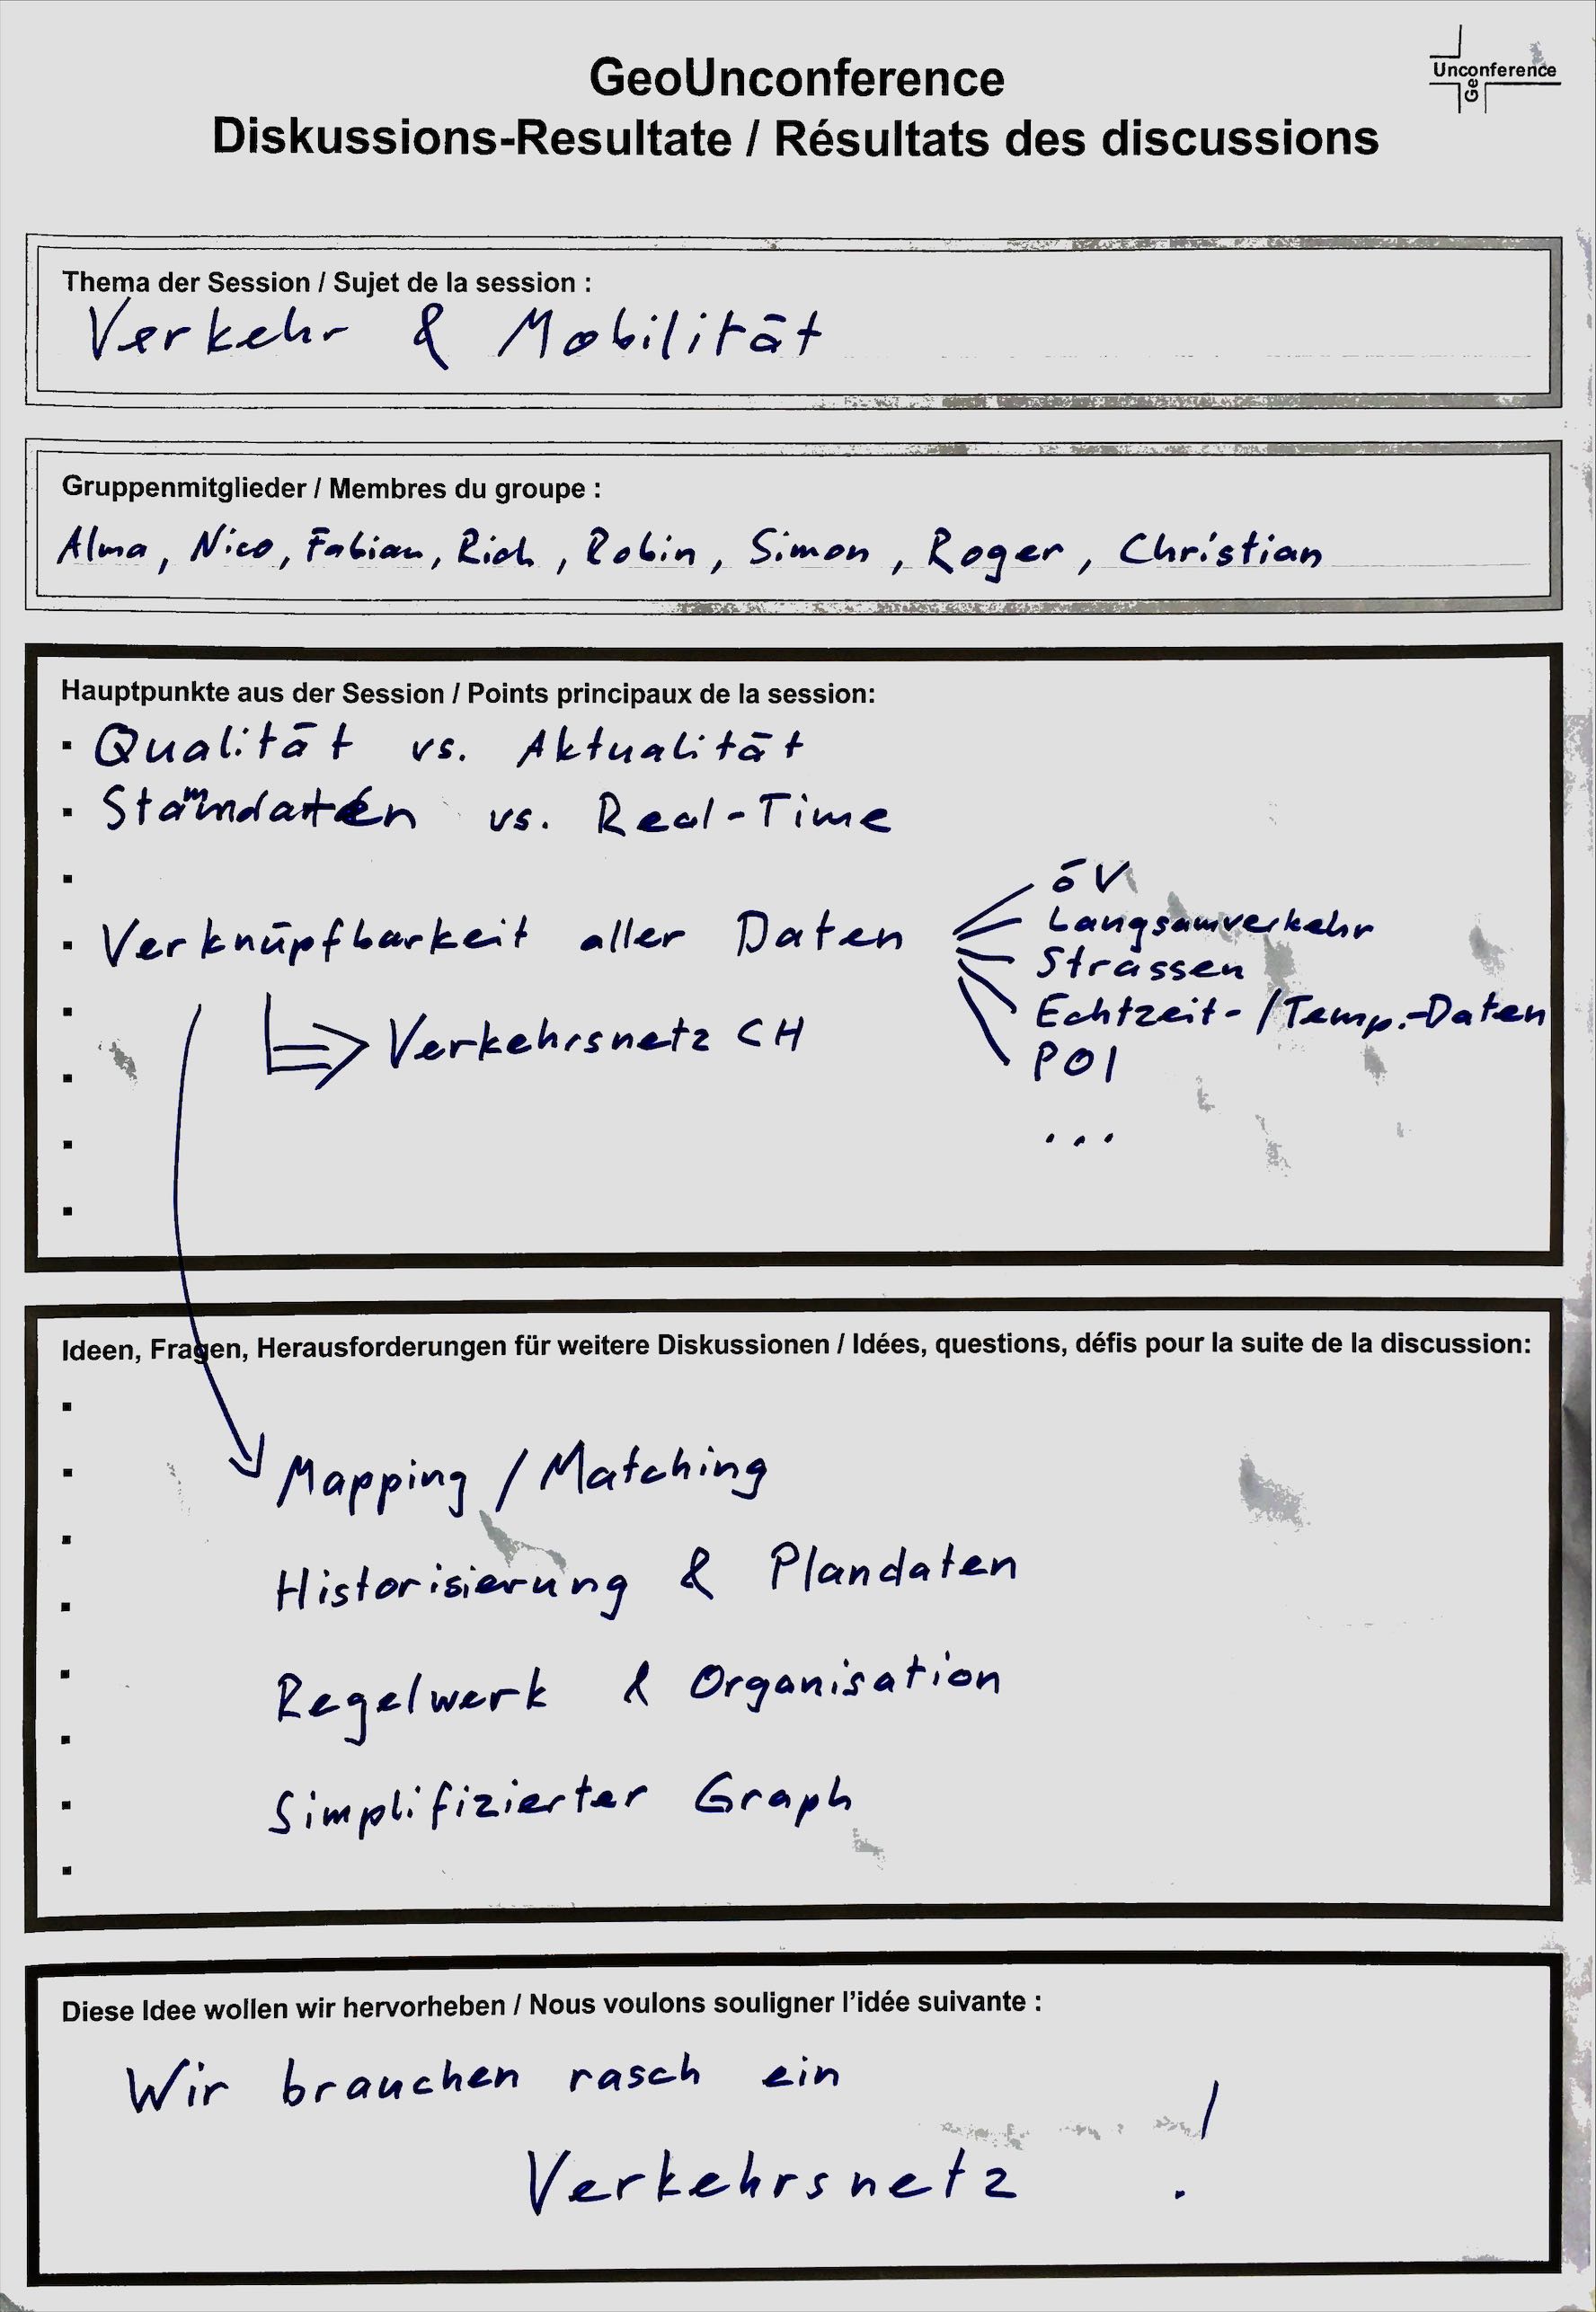 GeoUnconference
Diskussions-Resultate / Résultats des discussions
Unconference
Ge
Thema der Session / Sujet de la session :
Verkehr & Mobilität
Gruppenmitglieder / Membres du groupe :
Alma, Nico, Fabian, Rich, Robin, Simon, Roger, Christian
Hauptpunkte aus der Session / Points principaux de la session:
▪ Qualität vs. Aktualität
▪ Stammdaten vs. Real-Time
▪ Verknüpfbarkeit aller Daten
öV
Langsamverkehr
Strassen
Echtzeit- / Temp.-Daten
POI
...
Verkehrsnetz CH
Ideen, Fragen, Herausforderungen für weitere Diskussionen / Idées, questions, défis pour la suite de la discussion:
Mapping / Matching
Historisierung & Plandaten
Regelwerk & Organisation
Simplifizierter Graph
Diese Idee wollen wir hervorheben / Nous voulons souligner l'idée suivante :
Wir brauchen rasch ein
Verkehrsnetz !